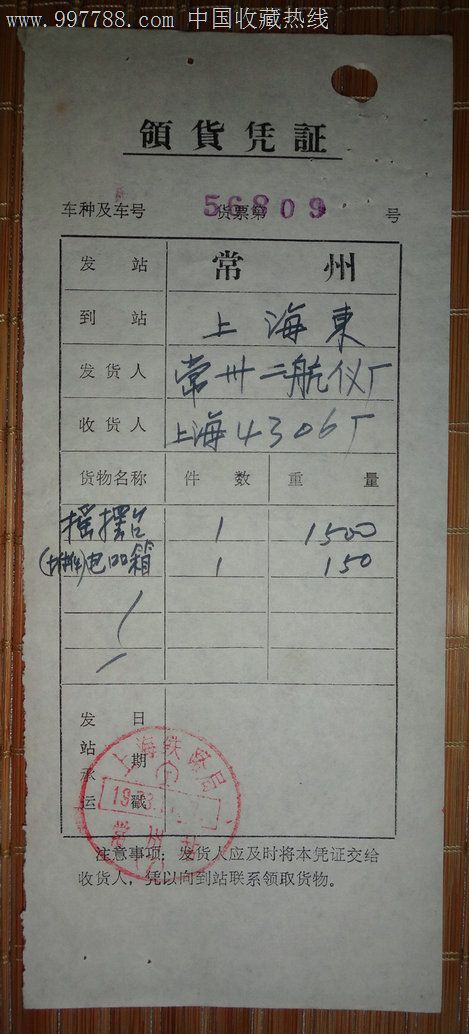 www.997788.com 中国收藏热线
領貨凭証
车种及车号 货票第 56809 号
发站 常州
到站 上海東
发货人 常州二航仪厂
收货人 上海4306厂
货物名称 件数 重量
摇摆台 1 1500
电品箱 1 150
发站承运 日期戳
上海铁路局
注意事项：发货人应及时将本凭证交给
收货人，凭以向到站联系领取货物。